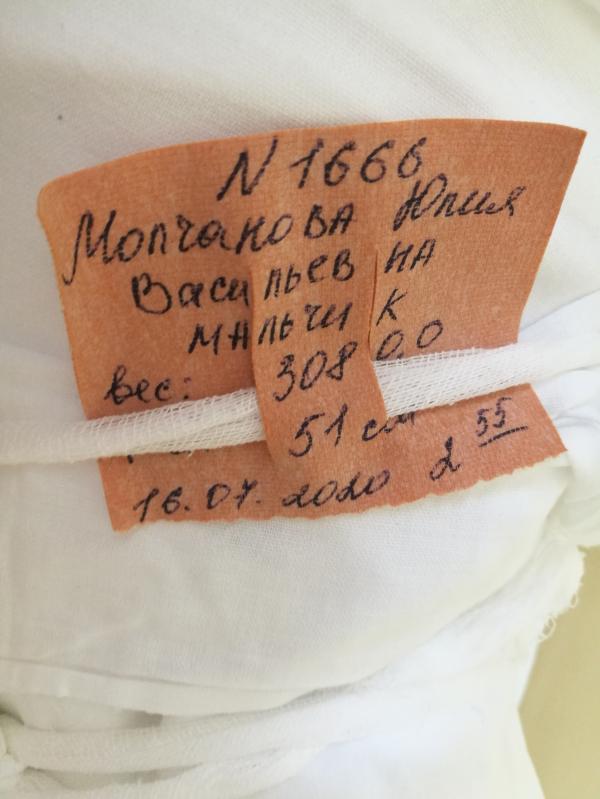 N 1666
Молчанова Юлия
Васильевна
мальчик
вес: 3080,0
51 см
16.07.2020 2 55